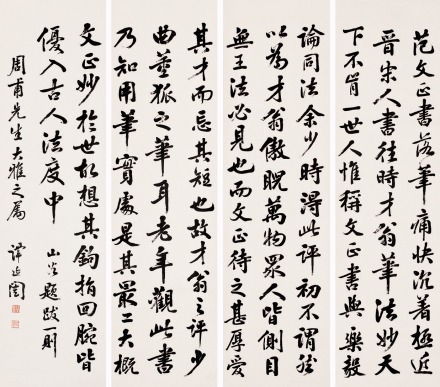 范文正書落筆痛快沉著極近
晉宋人書往時才翁筆法妙天
下不肯一世人惟稱文正書與樂毅
論同法余少時得此評初不謂然
以為才翁傲睨萬物眾人皆側目
無王法必見也而文正待之甚厚愛
其才而忌其短也故才翁之評少
曲董狐之筆耳老年觀此書
乃知用筆實處是其最工大概
文正妙於世故想其鉤指回腕皆
優入古人法度中
山谷題跋一則
周甫先生大雅之屬
譚延闓